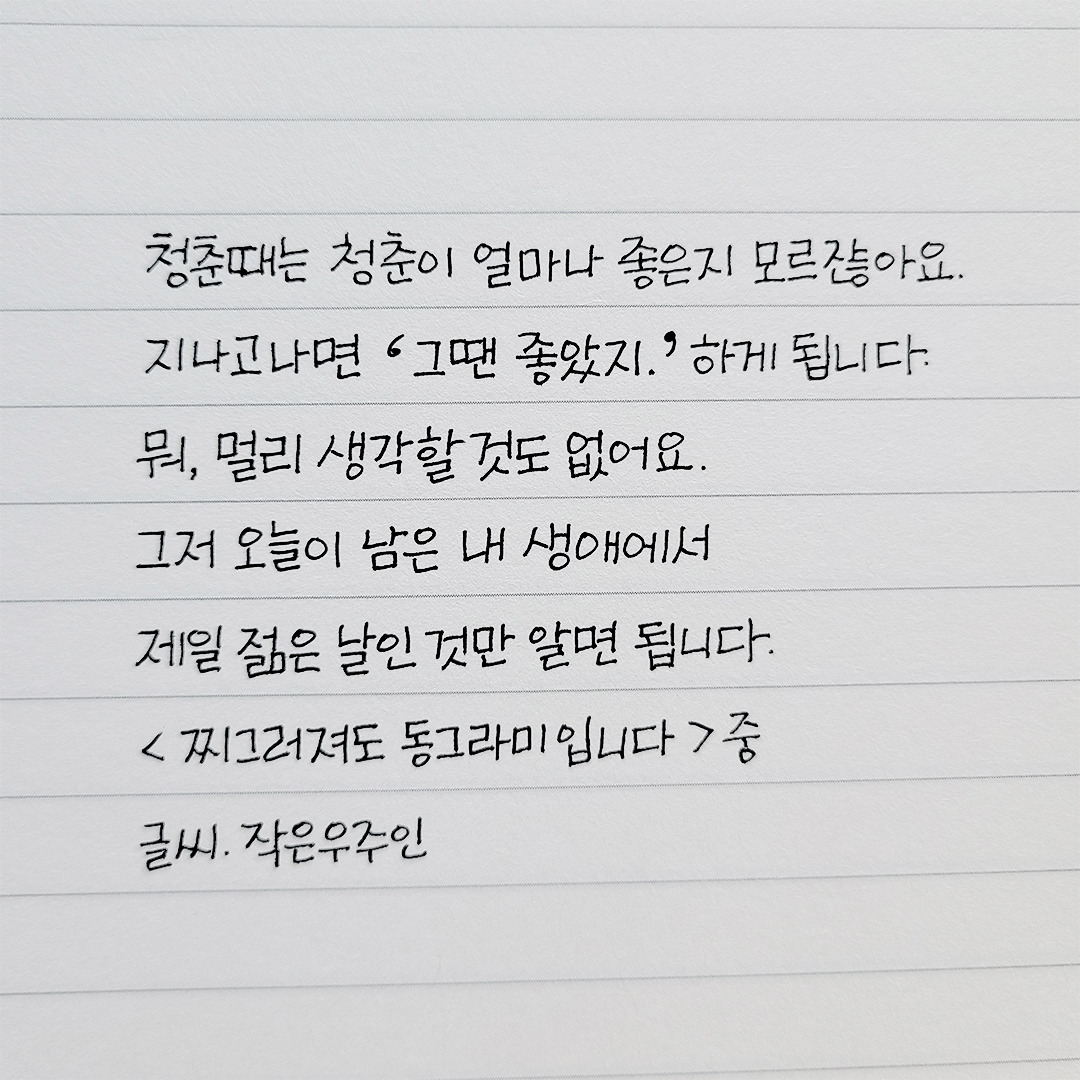 청춘때는 청춘이 얼마나 좋은지 모르잖아요.
지나고나면 ‘그땐 좋았지.’ 하게 됩니다.
뭐, 멀리 생각할것도 없어요.
그저 오늘이 남은 내 생애에서
제일 젊은 날인 것만 알면 됩니다.
< 찌그러져도 동그라미입니다 > 중
글씨. 작은우주인